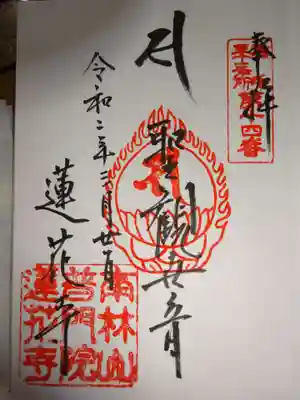 奉拝
聖観世音
令和二年三月廿日
蓮花寺
雨林山
普門院
蓮花寺